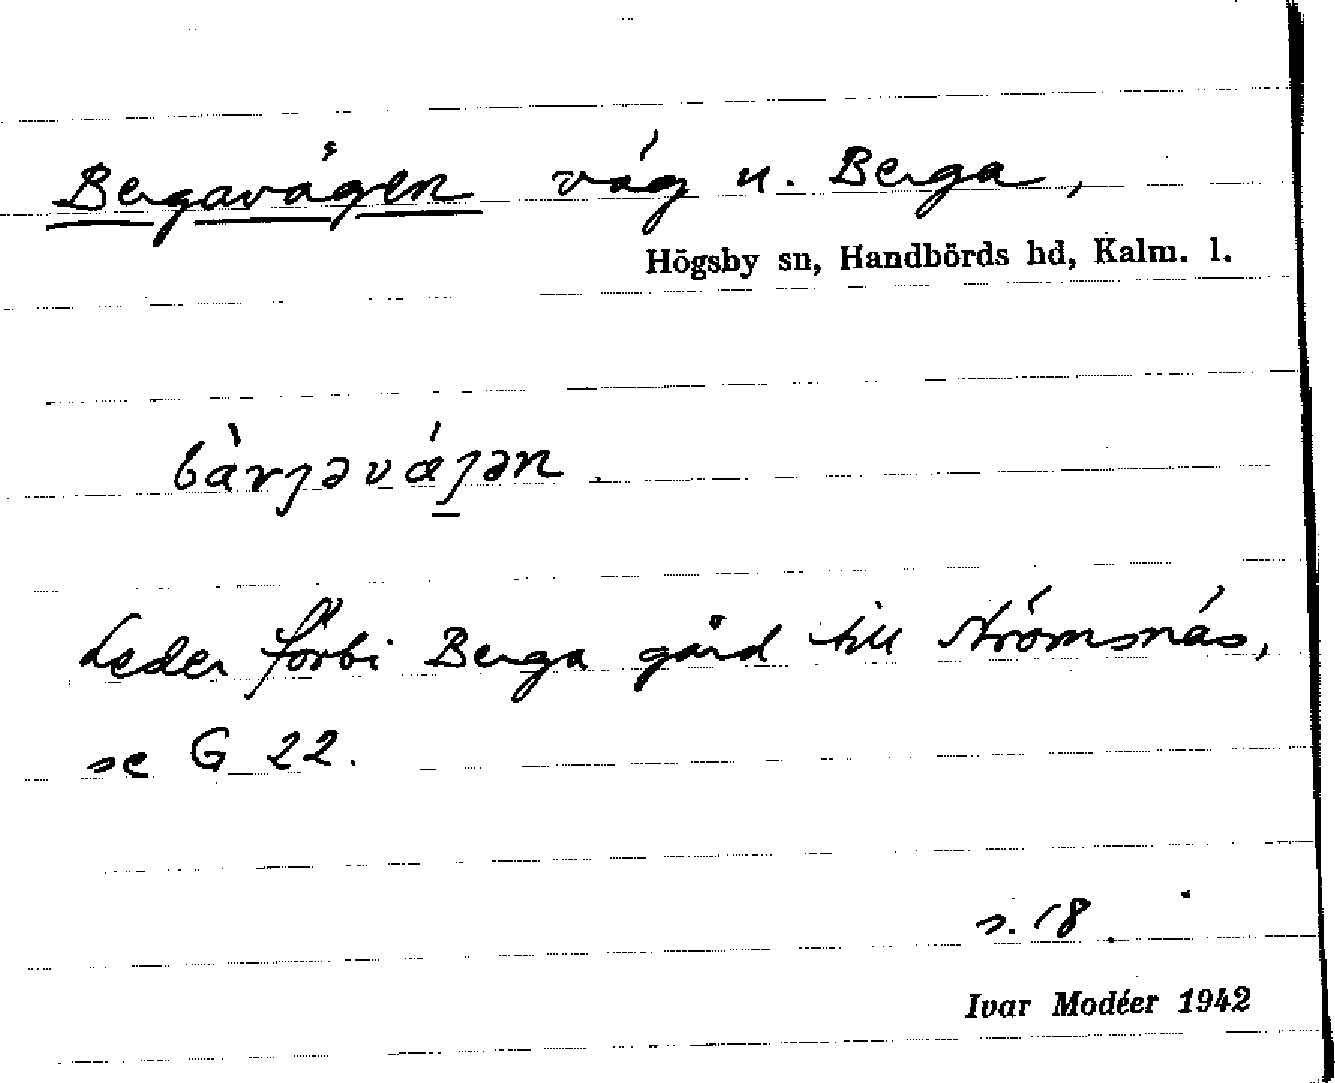 Bergavägen väg u. Berga,
Högsby sn, Handbörds hd, Kalm. l.
bàrȷəvǽȷən.
Leder förbi Berga gård till Strömsnäs,
se G 22.
s. 18.
Ivar Modéer 1942